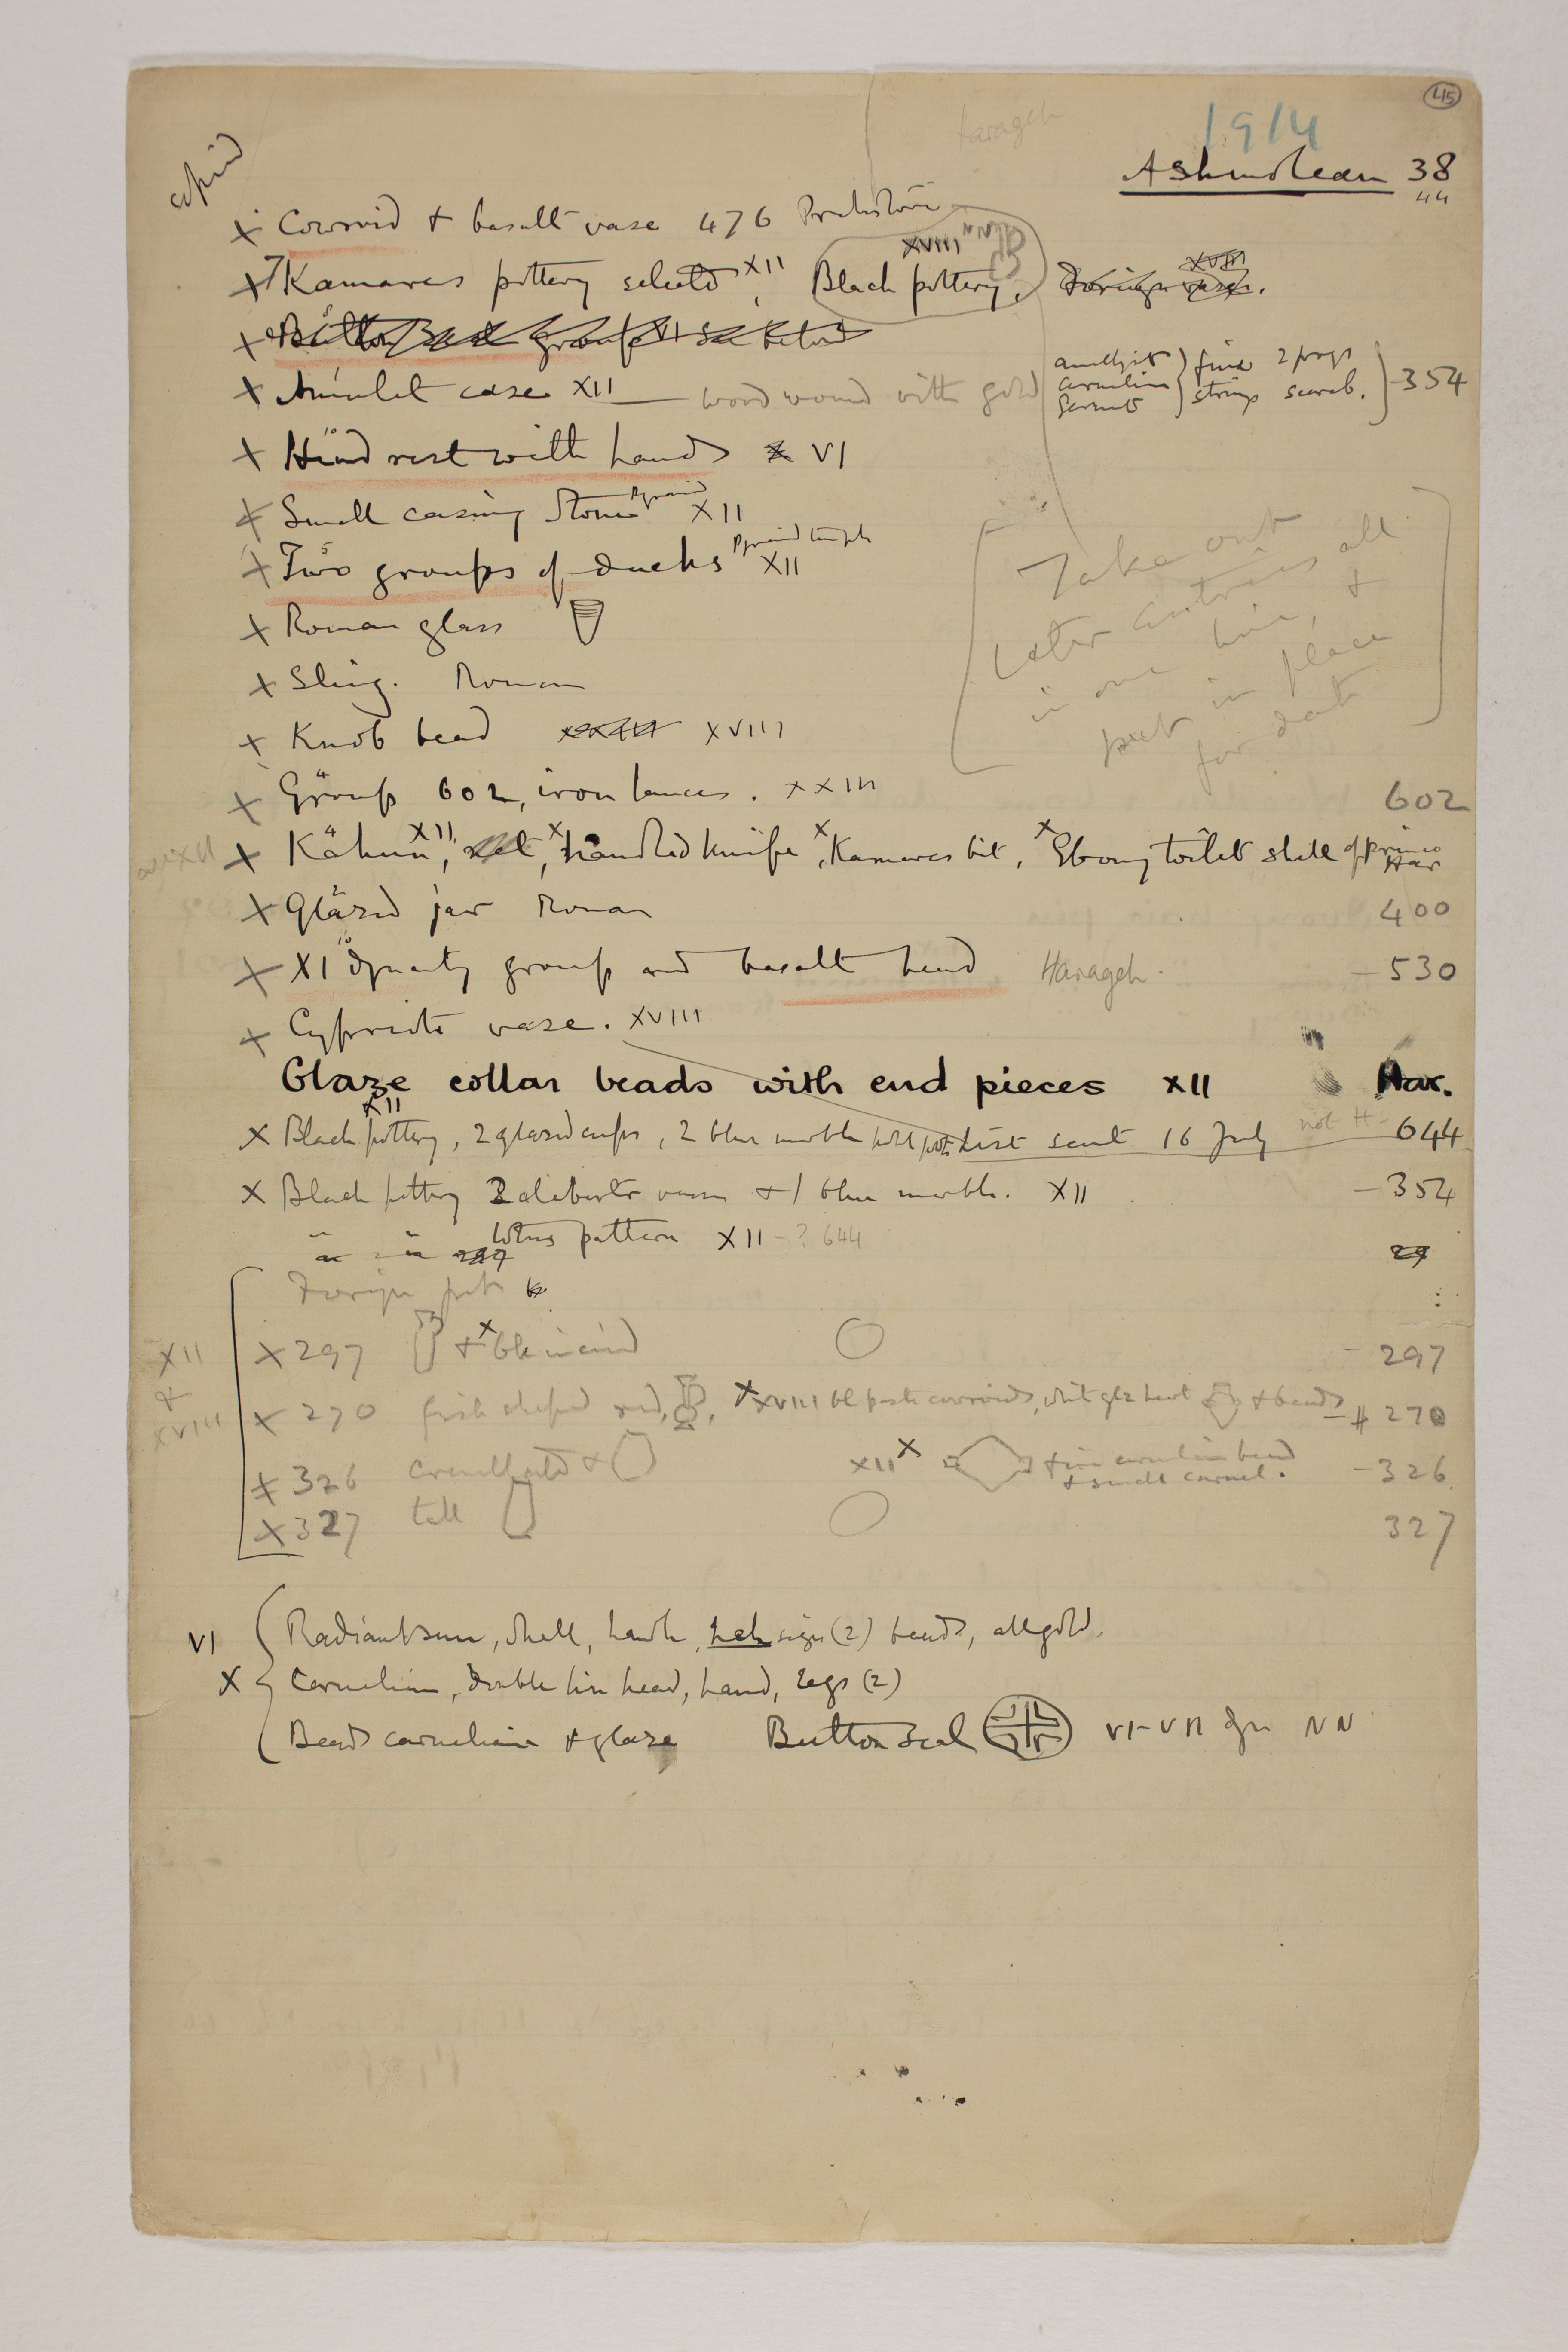 45
Harageh
1914
copied
Ashmolean 38
44
x Cowroid + basalt vase 476 Prehistoric
x 7 Kamares pottery selected XII, Black pottery, XVIII Foreign vases. XVIII
x Button Seal group VI See below
x Amulet case XII — wood wound with gold amethyst carnelian garnets } fine strings 2 frogs scarab. } 354
x Head rest with hands x VI
x Small casing stone Pyramid XII
x Two groups of ducks Pyramid temple XII
x Roman glass
x Sling. Roman
x Knob bead XVIII
[Take out
later entries all
in one line, +
put in place
for date]
x Group 602, iron lances. XXIII 602
x Kahun XII, set, x handled knife, x Kamares bit, x Ebony toilet shell of Prince Har
x Glazed jar Roman 400
x XI Dynasty group and basalt head Harageh. — 530
x Cypriote vase. XVIII
Glaze collar beads with end pieces XII Har.
x Black pottery, XII 2 glazed cups, 2 blue marble kohl pots List sent 16 July not H — 644
x Black pottery 2 alabaster vases + 1 blue marble. XII — 354
" " 297 lotus pattern XII - ? 644 29
Foreign pot
XII
&
XVIII
x 297 + x blk incised 297
x 270 fish shaped red, x XVIII bl paste cowroids, whit glz heart + beads — 270
x 326 crenellated + XII x + fine carnelian bead + small carnel. — 326
x 327 tall 327
VI Radiant sun, shell, hawk, heh sign (2) beads, all gold.
x Carnelian, double lion head, hand, legs (2)
Beads carnelian + glaze Button Seal VI-VII dyn NN